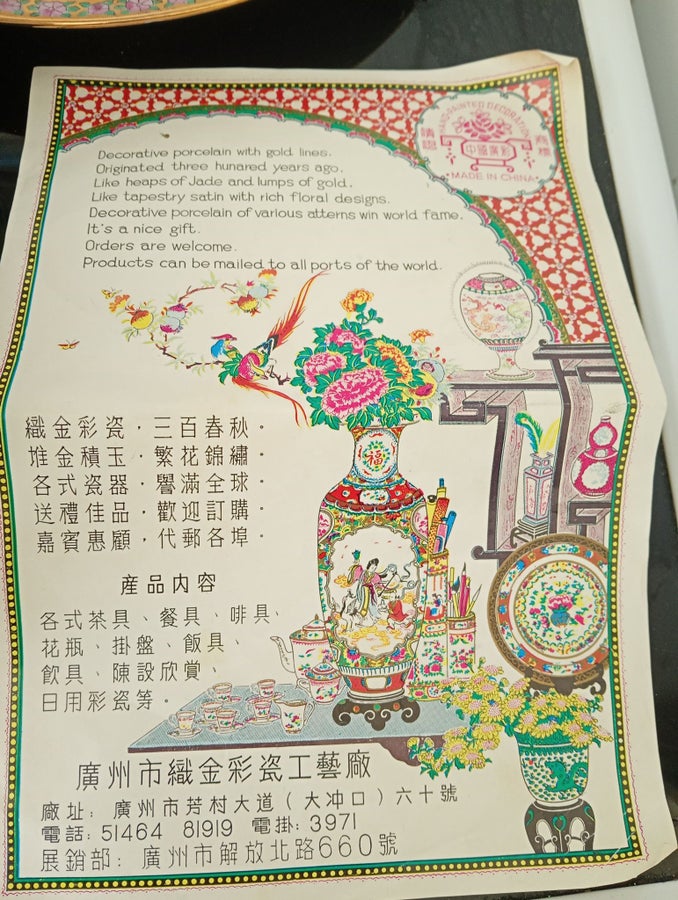 HAND-PAINTED DECORATION
請認 商標
中國廣彩
MADE IN CHINA
Decorative porcelain with gold lines.
Originated three hunared years ago.
Like heaps of Jade and lumps of gold.
Like tapestry satin with rich floral designs.
Decorative porcelain of various atterns win world fame.
It's a nice gift.
Orders are welcome.
Products can be mailed to all ports of the world.
福
織金彩瓷，三百春秋。
堆金積玉，繁花錦繡。
各式瓷器，譽滿全球。
送禮佳品，歡迎訂購。
嘉賓惠顧，代郵各埠。
産品内容
各式茶具、餐具、啡具、
花瓶、掛盤、飯具、
飲具、陳設欣賞、
日用彩瓷等。
廣州市織金彩瓷工藝廠
廠址：廣州市芳村大道（大冲口）六十號
電話：51464 81919 電掛：3971
展銷部：廣州市解放北路660號